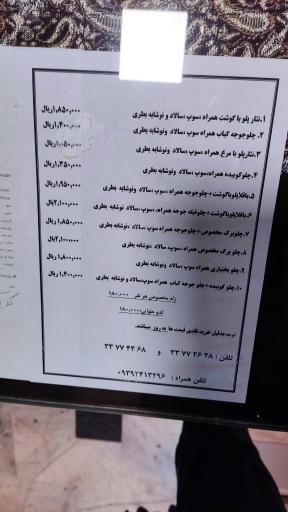 ۱.نثار پلو با گوشت همراه ،سوپ ،سالاد و نوشابه بطری ۱,۸۵۰,۰۰۰ریال
۲. چلوجوجه کباب همراه سوپ ،سالاد ونوشابه بطری ۱,۴۰۰,۰۰۰ریال
۳.نثارپلو با مرغ همراه ،سوپ ،سالاد ونوشابه بطری ریال
۴.چلوکوبیده همراه،سوپ ،سالاد ونوشابه بطری ۱,۳۵۰,۰۰۰ریال
۵.باقلاپلوباگوشت+چلوجوجه همراه ،سوپ ،سالاد ونوشابه بطری ۱,۹۵۰,۰۰۰ریال
۶.باقلاپلوباگوشت+چلوفیله جوجه همراه ،سوپ ،سالاد نوشابه بطری ریال
۷.چلوبرگ مخصوص+چلوجوجه همراه ،سوپ ،سالاد ،نوشابه بطری ۱,۸۵۰,۰۰۰ریال
۸.چلو برگ مخصوص همراه،سوپ سالاد ،نوشابه بطری ۲,۱۰۰,۰۰۰ریال
۹.چلو بختیاری همراه سوپ ،سالاد ونوشابه بطری ۱,۸۰۰,۰۰۰ریال
۱۰.چلو کوبیده+ چلو جوجه کباب همراه سوپ،سالاد و نوشابه بطری ۱,۴۰۰,۰۰۰ریال
ژله مخصوص هر نفر ۱۸۰,۰۰۰
کدو حلوایی:۱۸۰,۰۰۰
توجه بدلیل خرید نقدی قیمت ها به روز میباشد.
تلفن : ۳۸ ۲۶ ۷۷ ۳۳ و ۶۸ ۴۴ ۷۷ ۳۳
تلفن همراه : ۰۹۳۹۲۴۱۳۲۹۶